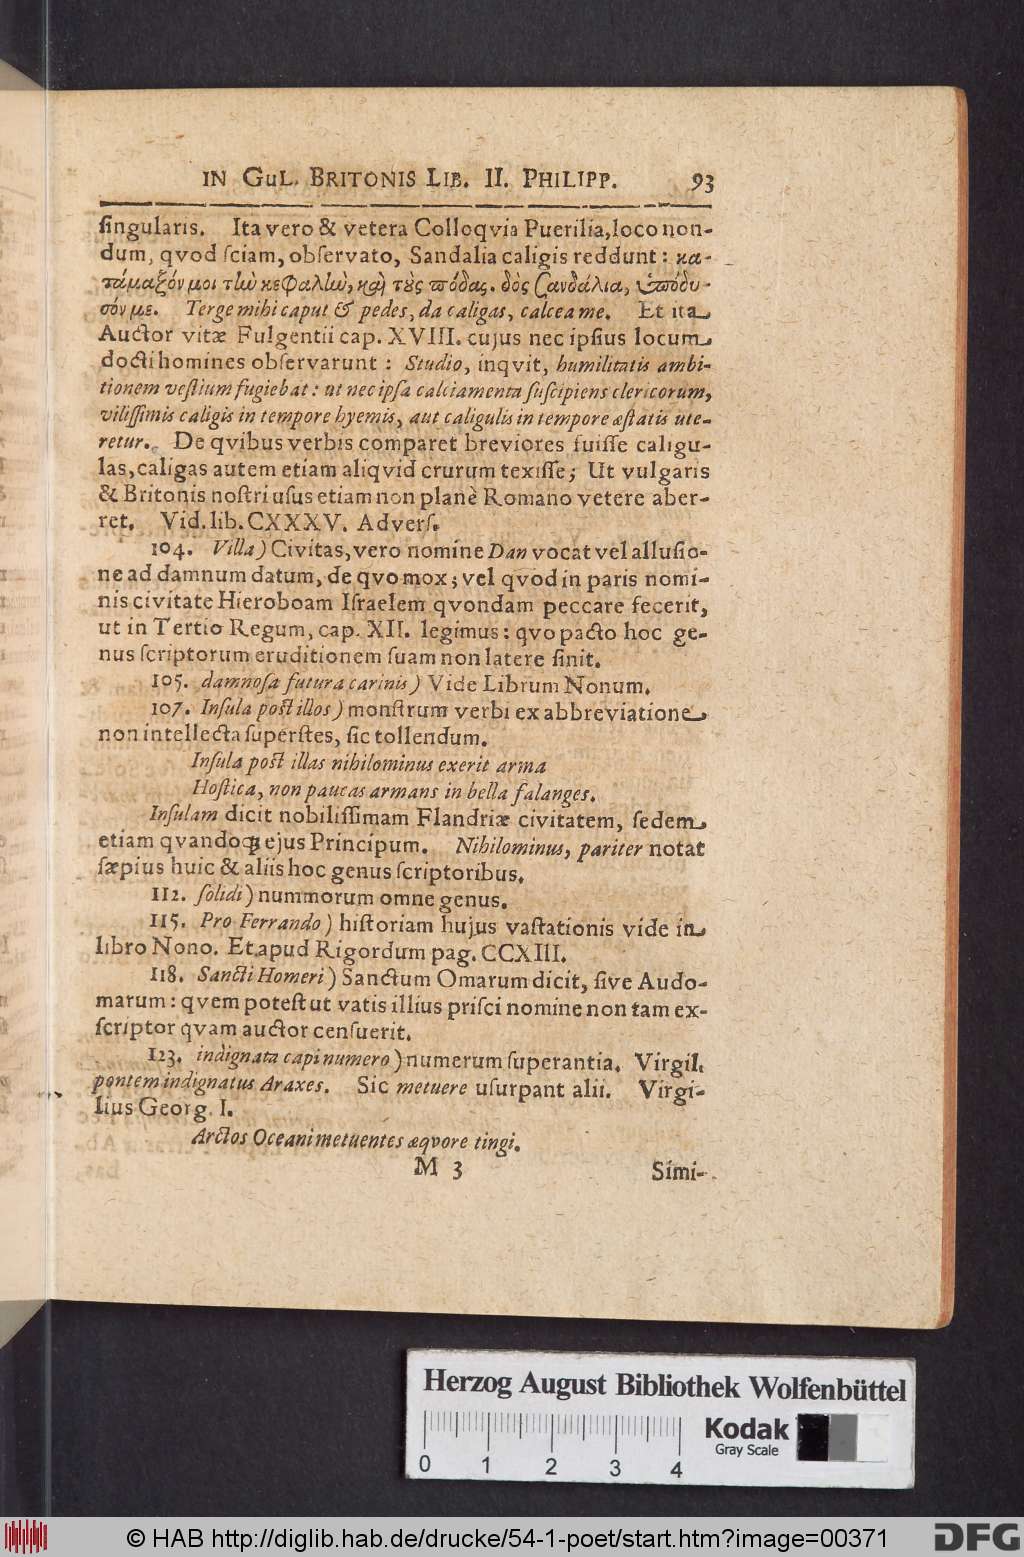 IN GUL. BRITONIS LIB. II. PHILIPP. 93
ſingularis. Ita vero & vetera Colloqvia Puerilia, loco non-
dum, qvod ſciam, obſervato, Sandalia caligis reddunt: κα-
τάμαξόν μοι τὴν κεφαλὴν, καὶ τοὺς πόδας. δὸς σανδάλια, ὑπόδυ-
σόν με. Terge mihi caput & pedes, da caligas, calcea me. Et ita
Auctor vitæ Fulgentii cap. XVIII. cujus nec ipſius locum
docti homines obſervarunt: Studio, inqvit, humilitatis ambi-
tionem veſtium fugiebat: ut nec ipſa calciamenta ſuſcipiens clericorum,
viliſſimis caligis in tempore hyemis, aut caligulis in tempore æſtatis ute-
retur. De qvibus verbis comparet breviores fuiſſe caligu-
las, caligas autem etiam aliqvid crurum texiſſe; Ut vulgaris
& Britonis noſtri uſus etiam non planè Romano vetere aber-
ret. Vid. lib. CXXXV. Adverſ.
104. Villa) Civitas, vero nomine Dan vocat vel alluſio-
ne ad damnum datum, de qvo mox; vel qvod in paris nomi-
nis civitate Hieroboam Iſraelem qvondam peccare fecerit,
ut in Tertio Regum, cap. XII. legimus: qvo pacto hoc ge-
nus ſcriptorum eruditionem ſuam non latere ſinit.
105. damnoſa futura carinis) Vide Librum Nonum.
107. Inſula poſt illos) monſtrum verbi ex abbreviatione
non intellecta ſuperſtes, ſic tollendum.
Inſula poſt illas nihilominus exerit arma
Hoſtica, non paucas armans in bella falanges.
Inſulam dicit nobiliſſimam Flandriæ civitatem, ſedem
etiam qvandoqꝫ ejus Principum. Nihilominus, pariter notat
ſæpius huic & aliis hoc genus ſcriptoribus.
112. ſolidi) nummorum omne genus.
115. Pro Ferrando) hiſtoriam hujus vaſtationis vide in
libro Nono. Et apud Rigordum pag. CCXIII.
118. Sancti Homeri) Sanctum Omarum dicit, ſive Audo-
marum: qvem poteſt ut vatis illius priſci nomine non tam ex-
ſcriptor qvam auctor cenſuerit.
123. indignata capi numero) numerum ſuperantia. Virgil.
pontem indignatus Araxes. Sic metuere uſurpant alii. Virgi-
lius Georg. I.
Arctos Oceani metuentes æqvore tingi.
M 3 Simi-
Herzog August Bibliothek Wolfenbüttel
Kodak
Gray Scale
0 1 2 3 4
© HAB http://diglib.hab.de/drucke/54-1-poet/start.htm?image=00371
DFG